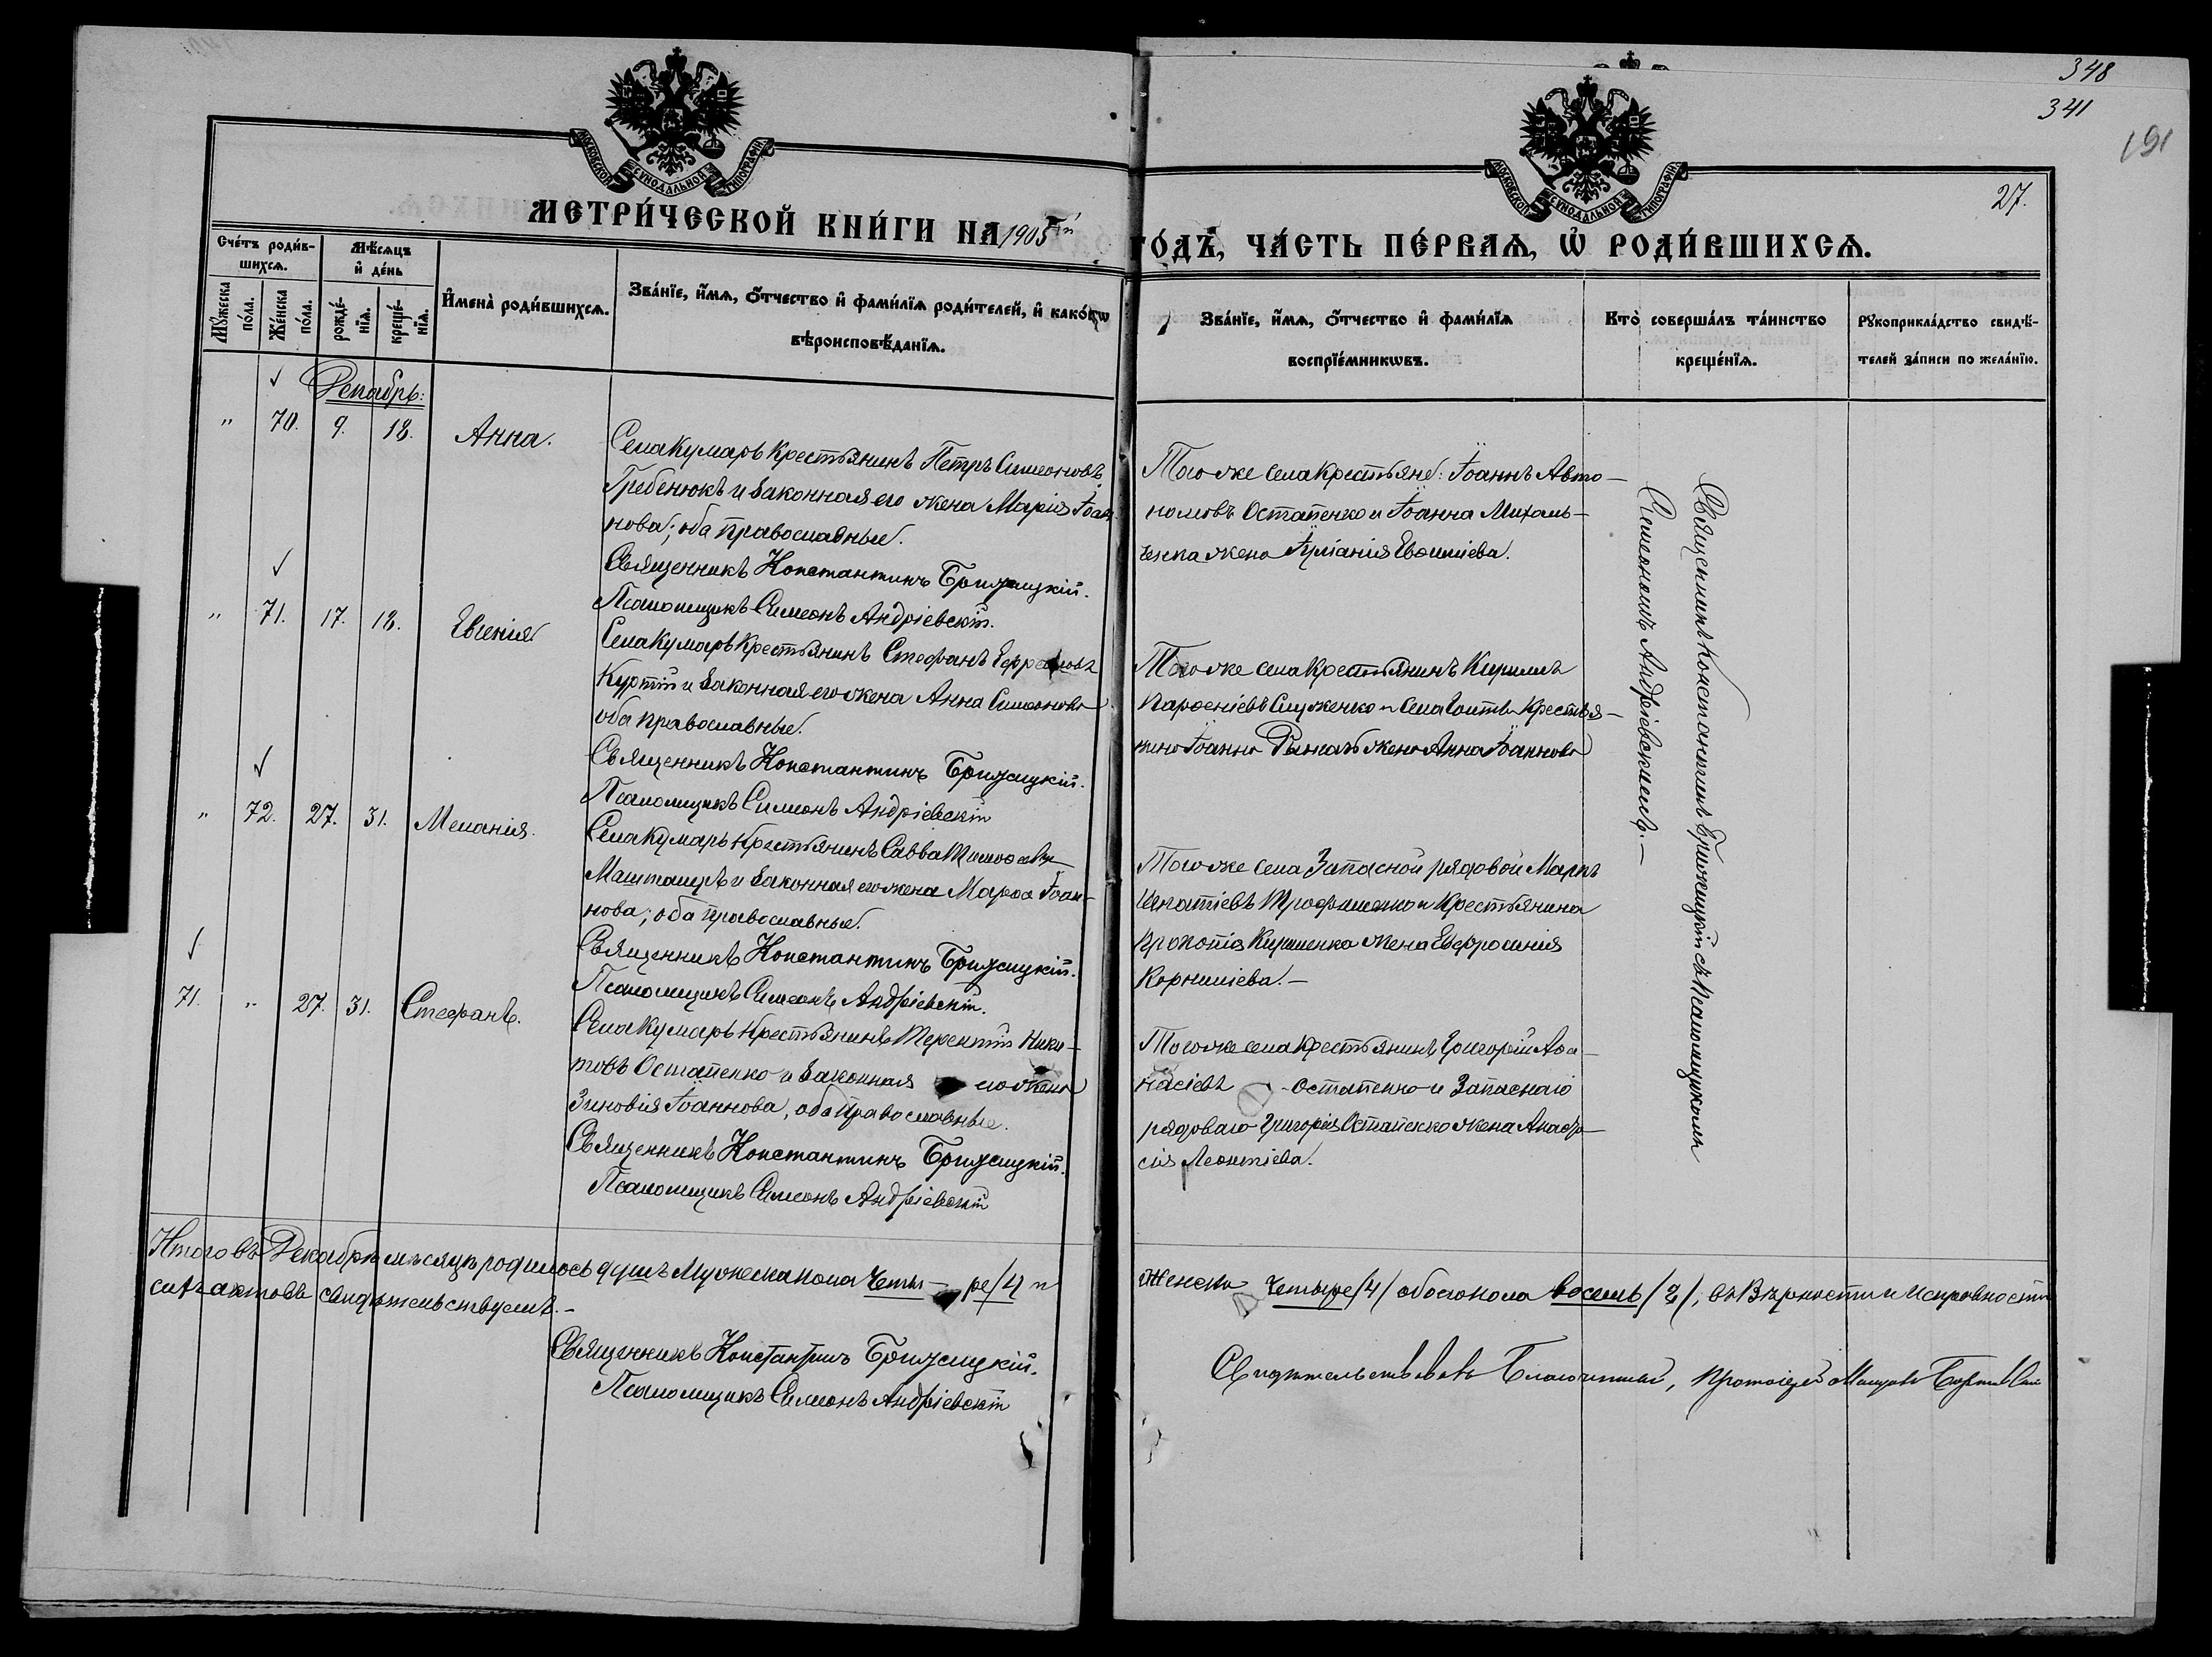 348
341
191
27.
МОСКОВСКОЙ СУНОДАЛЬНОЙ ТИПОГРАФІИ
МОСКОВСКОЙ СУНОДАЛЬНОЙ ТИПОГРАФІИ
МЕТРИ́ЧЕСКОЙ КНИ́ГИ НА 1905й ГО́ДЪ, ЧА́СТЬ ПЕ́РВАѦ, Ѡ РОДИ́ВШИХСѦ.
Сче́тъ роди́в-
шихсѧ.
Мꙋ́жеска
по́ла.
Же́нска
по́ла.
Мѣ́сѧцъ
и҆ де́нь
рожде́-
нїѧ.
креще́-
нїѧ.
И҆мена̀ роди́вшихсѧ.
Зва́нїе, и҆́мѧ, ѻ҆́тчество и҆ фами́лїѧ роди́телей, и҆ како́гѡ
вѣроисповѣ́данїѧ.
Зва́нїе, и҆́мѧ, ѻ҆́тчество и҆ фами́лїѧ
воспрїе́мникѡвъ.
Кто̀ соверша́лъ та́инство
креще́нїѧ.
Рꙋкоприкла́дство свидѣ́-
телей за́писи по жела́нїю.
Декабрь:
" 70. 9. 18. Анна.
Села Кумаръ Крестьянинъ Петръ Симеоновъ
Гребенюкъ и законная его жена Марія Іоан-
нова; оба православные.
Священникъ Константинъ Брижицкій.
Псаломщикъ Симеонъ Андріевскій.
Того же села крестьяне: Іоаннъ Авто-
номовъ Остапенко и Іоанна Михаль-
ченка жена Іуліанія
" 71. 17. 18. Евгенія
Села Кумаръ Крестьянинъ Стефанъ Ефремовъ
Куртій и законная его жена Анна Симеонова
оба православные.
Священникъ Константинъ Брижицкій.
Псаломщикъ Симеонъ Андріевскій
Того же села Крестьянинъ Кириллъ
Парѳеніевъ и села Крестья-
нина Іоанна жена Анна Іоаннова
" 72. 27. 31. Меланія.
Села Кумаръ Крестьянинъ Савва Тимоѳеевъ
и законная его жена Марѳа Іоан-
нова; оба православные.
Священникъ Константинъ Брижицкій.
Псаломщикъ Симеонъ Андріевскій.
Того же села Запасной рядовой Маркъ
Игнатіевъ Трофименко и Крестьянина
Прокопія Кириленка жена Евфросинія
Корниліева.-
71. " 27. 31. Стефанъ.
Села Кумаръ Крестьянинъ Терентій Ники-
товъ Остапенко и законная его жена
Зиновія Іоаннова, оба православные.
Священникъ Константинъ Брижицкій.
Псаломщикъ Симеонъ Андріевскій
Того же села крестьянинъ Григорій Аѳа-
насіевъ Остапенко и Запаснаго
рядоваго Григорія Остапенко жена
Леонтіева.
Священникъ Константинъ Брижицкій съ Псаломщикомъ
Симеономъ Андріевскимъ.-
Итого въ Декабрѣ мѣсяцѣ родилось душъ Мужеска пола Четы-ре/4/ и Женска Четыре/4/ обоего пола восемь/8/, въ вѣрности и исправности
сихъ актовъ свидѣтельствуемъ.-
Священникъ Константинъ Брижицкій.
Псаломщикъ Симеонъ Андріевскій
Свидѣтельствовалъ Благочинный, Протоіерей